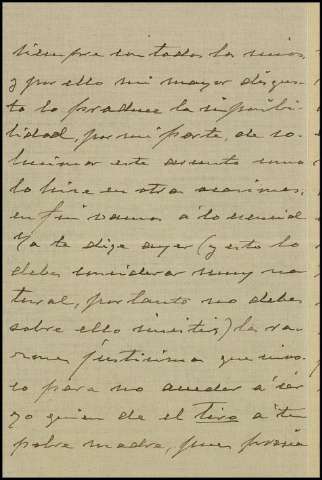 siempre con todos los míos,
y por ello mi mayor disgus-
to lo produce la imposibi-
lidad, por mi parte, de so-
lucionar este asunto como
lo hice en otras ocasiones,
en fin vamos á lo esencial
Ya te dige ayer (y esto lo
debes considerar muy na-
tural, por tanto no debes
sobre ello insistir) las ra-
zones justisimas que invo-
co para no acceder á ser
yo quien de el tiro a tu
pobre madre, pues